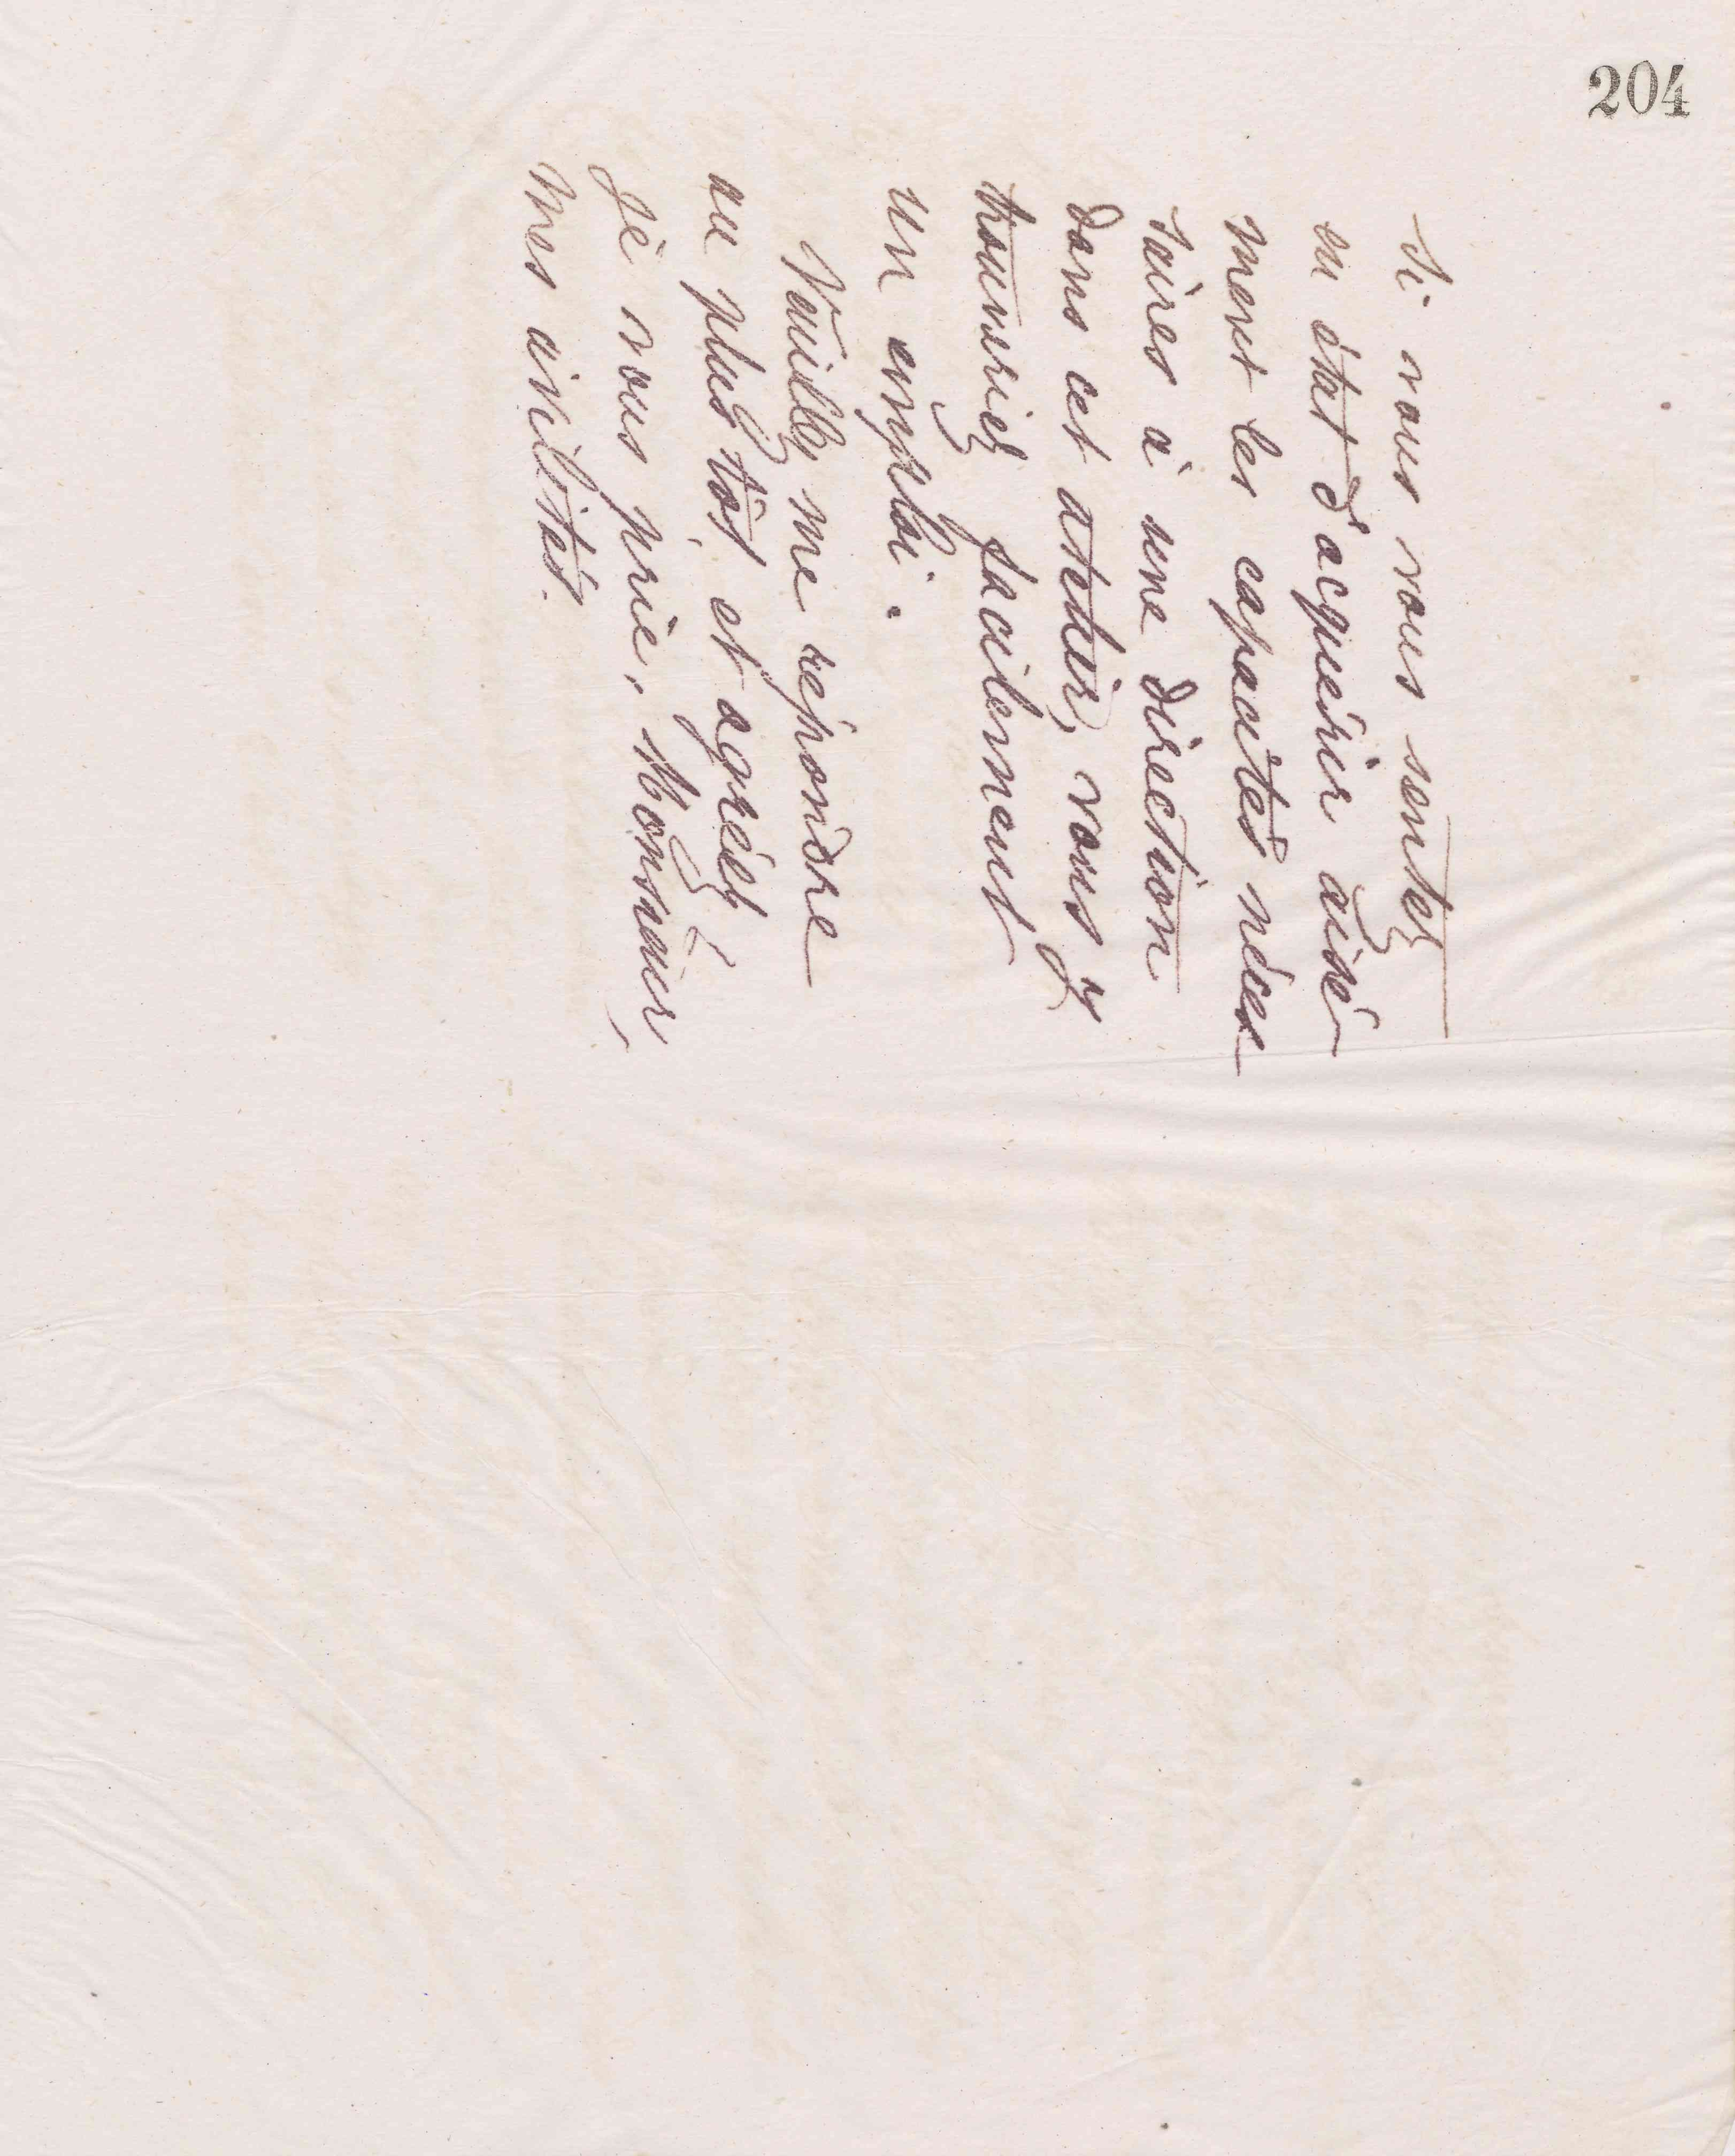 204
Si vous vous sentez
en état d'acquérir aisé-
ment les capacités néces-
saires à une direction
dans cet atelier, vous y
trouveriez facilement
un emploi.
Veuillez me répondre
au plus tôt, et agréez,
je vous prie, Monsieur,
mes civilités.